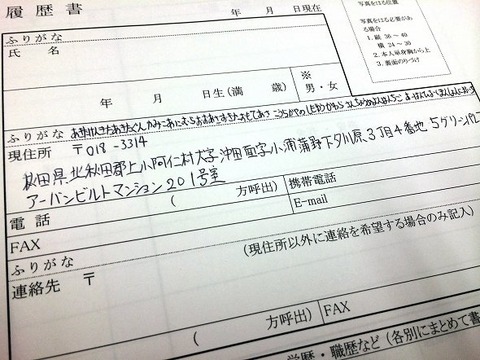 履歴書
年 月 日現在
写真をはる位置
写真をはる必要がある場合
1. 縦 36～40
横 24～30
2. 本人単身胸から上
3. 裏面のりづけ
ふりがな
氏 名
年 月 日生(満 歳)
※
男・女
ふりがな あきたけんきたあきたぐん かみこあにむら おおあざおきたおもてあざ
現住所 〒018-3314
秋田県北秋田郡上小阿仁村大字沖田面字小蒲野下夕川原3丁目4番地5グリーンヒル
アーバンビルトマンション201号室
(方呼出)
電話
FAX
携帯電話
E-mail
ふりがな
連絡先 〒
(現住所以外に連絡を希望する場合のみ記入)
(方呼出)
FAX
学歴・職歴など(各別にまとめて書